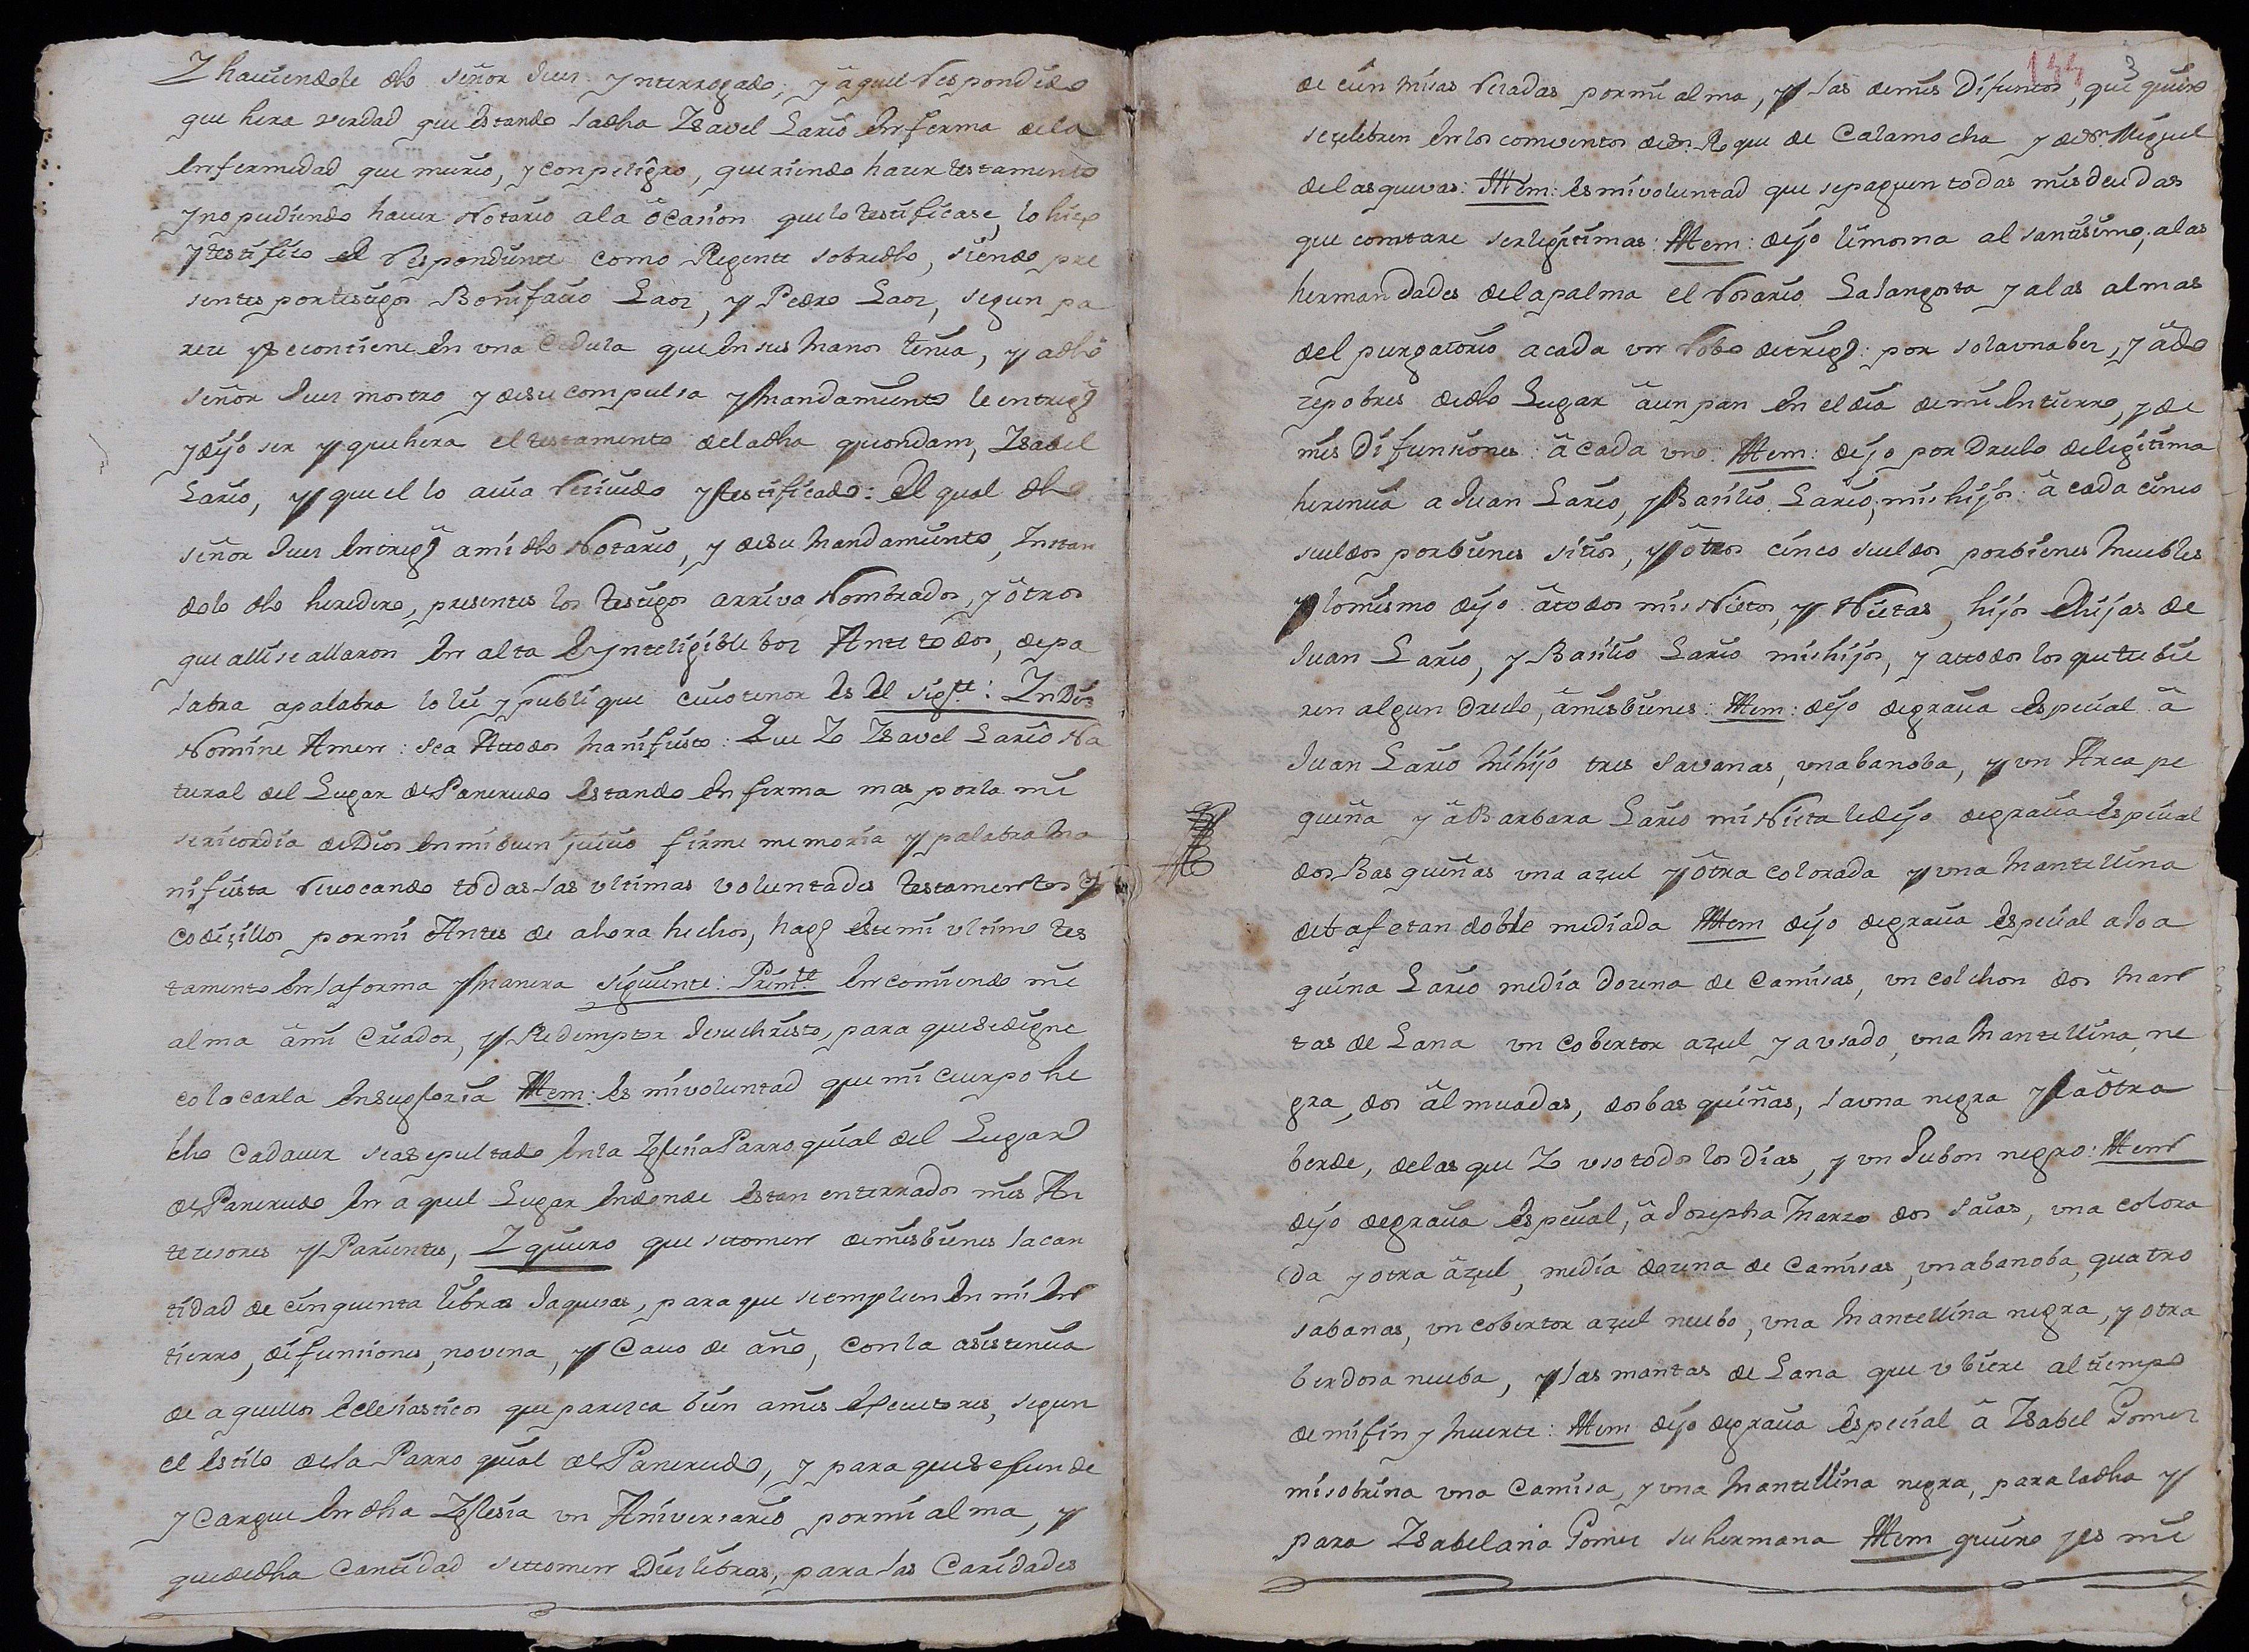 Y haviendole dho señor Juez Ynterrogado, y aquel respondido
que hera verdad que estando la dha Ysavel Lario Enferma de la
Enfermedad que murio, y con peligro, queriendo hacer testamento
y no pudiendo haver Notario a la ôcasion que lo testificase, lo hizo
y testifico el respondiente como Regente sobredho, siendo pre
sentes por testigos Bonifacio Laoz, y Pedro Laoz, segun pa
rece y se contiene en una Cedula que en sus manos tenia, y a dho
señor Juez mostro y de su compulsa y mandamiento le entregô
y dijo ser y que hera el testamento de la dha quondam, Ysabel
Lario, y que el lo avia recivido y testificado: El qual dho
señor Juez Entregô a mi dho Notario, y de su mandamiento, Instan
dolo dho heredero, presentes los testigos arriva Nombrados, y ôtros
que alli se allaron en alta E Ynteligible boz Ante todos, de pa
labra a palabra lo lei y publique cuio tenor es el sigte: In Dei
Nomine Amen: sea Attodos manifiesto: Que Yo Ysavel Lario Na
tural del Lugar de Pancrudo estando enferma mas por la mi
sericordia de Dios en mi buen juicio firme memoria y palabra ma
nifiesta revocando todas las ultimas voluntades testamentos y
codizillos por mi Antes de ahora hechos, hago este mi ultimo tes
tamento en la forma y manera siguiente: Primte Encomiendo mi
alma â mi Criador, y Redemptor Jesuchristo, para que se digne
colocarla en su gloria Ittem: es mi voluntad que mi cuerpo he
cho Cadaver sea sepultado en la Yglesia Parroquial del Lugar
de Pancrudo en aquel Lugar en donde estan enterrados mis An
tecesores y Parientes, Y quiero que se tomen de mis bienes la can
tidad de cinquenta libras Jaquesas, para que se empleen en mi En
tierro, difunciones, novena, y Cavo de año, con la asistencia
de aquellos Eclesiasticos que parezca bien a mis Executores, segun
el estilo de la Parroquial de Pancrudo, y para que se funde
y Cargue en dha Yglesia un Aniversario por mi alma, y
que de dha Cantidad se tomen Diez libras, para las Caridades
144 3
de cien misas rezadas por mi alma, y las de mis Difuntos, que quiero
se zelebren en los comventos de Sn. Roque de Calamocha y de Sn. Miguel
de las quevas: Ittem: es mi voluntad que se paguen todas mis deudas
que constare ser legitimas: Ittem: dejo limosna al santisimo, a las
hermandades de la palma el rosario Lalangosta y a las almas
del purgatorio a cada un robo de trigo: por sola una bez, y â do
ze pobres de dho Lugar âun pan en el dia de mi Entierro, y de
mis Difunsiones: â cada uno. Ittem: dejo por Drecho de legitima
herencia a Juan Lario, y Basilio Lario, mis hijos: â cada cinco
sueldos por bienes sitios, y ôtros cinco sueldos por bienes muebles
y lo mismo dejo: â todos mis Nietos, y Nietas, hijos e hijas de
Juan Lario, y Basilio Lario mis hijos, y a ttodos los que tubie
ren algun Drecho, â mis bienes: Ittem: dejo de gracia especial â
Juan Lario mi hijo tres Savanas, una banoba, y un Arca pe
queña y â Barbara Lario mi Nieta le dejo de gracia Especial
dos Basquiñas una azul y ôtra colorada y una mantellina
de tafetan doble mediada Ittem dejo de gracia especial a Joa
quina Lario media Dozena de Camisas, un colchon dos man
tas de Lana un cobertor azul ya usado, una mantellina ne
gra, dos âlmuadas, dos basquiñas, la una negra y la ôtra
berde, de las que Yo uso todos los dias, y un Jubon negro: Ittem
dejo de gracia especial, â Josepha Marzo dos saias, una colora
da y otra âzul, media dozena de Camisas, una banoba, quatro
sabanas, un cobertor azul nuebo, una mantellina negra, y otra
berdosa nueba, y las mantas de Lana que ubiere al tiempo
de mi fin y muerte: Ittem dejo de gracia especial â Ysabel Gomez
mi sobrina una Camisa, y una mantellina negra, para la dha y
para Ysabelana Gomez su hermana Ittem quiero y es mi